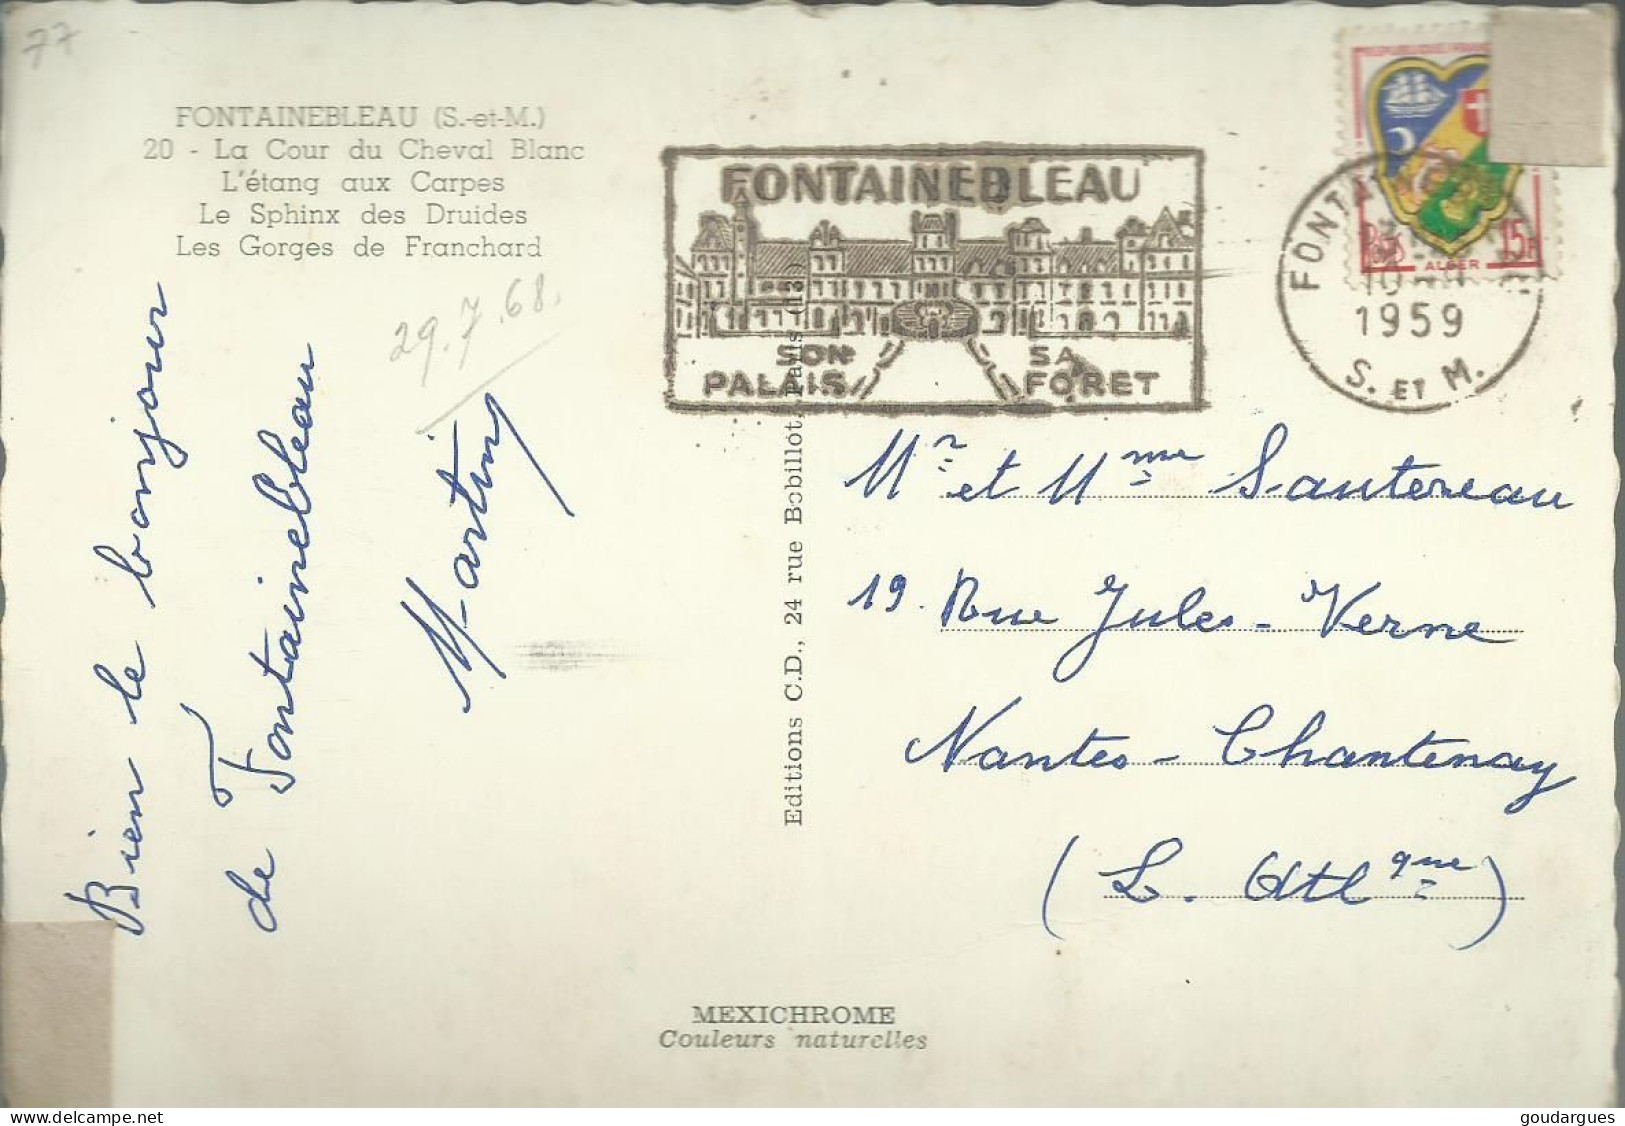 77
FONTAINEBLEAU (S.-et-M.)
20 - La Cour du Cheval Blanc
L'étang aux Carpes
Le Sphinx des Druides
Les Gorges de Franchard
29.7.68.
Bien le bonjour
de Fontainebleau
Martin
Editions C.D., 24 rue Bobillot, Paris (13)
FONTAINEBLEAU
SON PALAIS
SA FORET
Postes 15F
ALGER
1959
S. ET M.
Mr et Mme Sautereau
19. Rue Jules-Verne
Nantes-Chantenay
(L. Atlque)
MEXICHROME
Couleurs naturelles
delcampe.net
goudargues